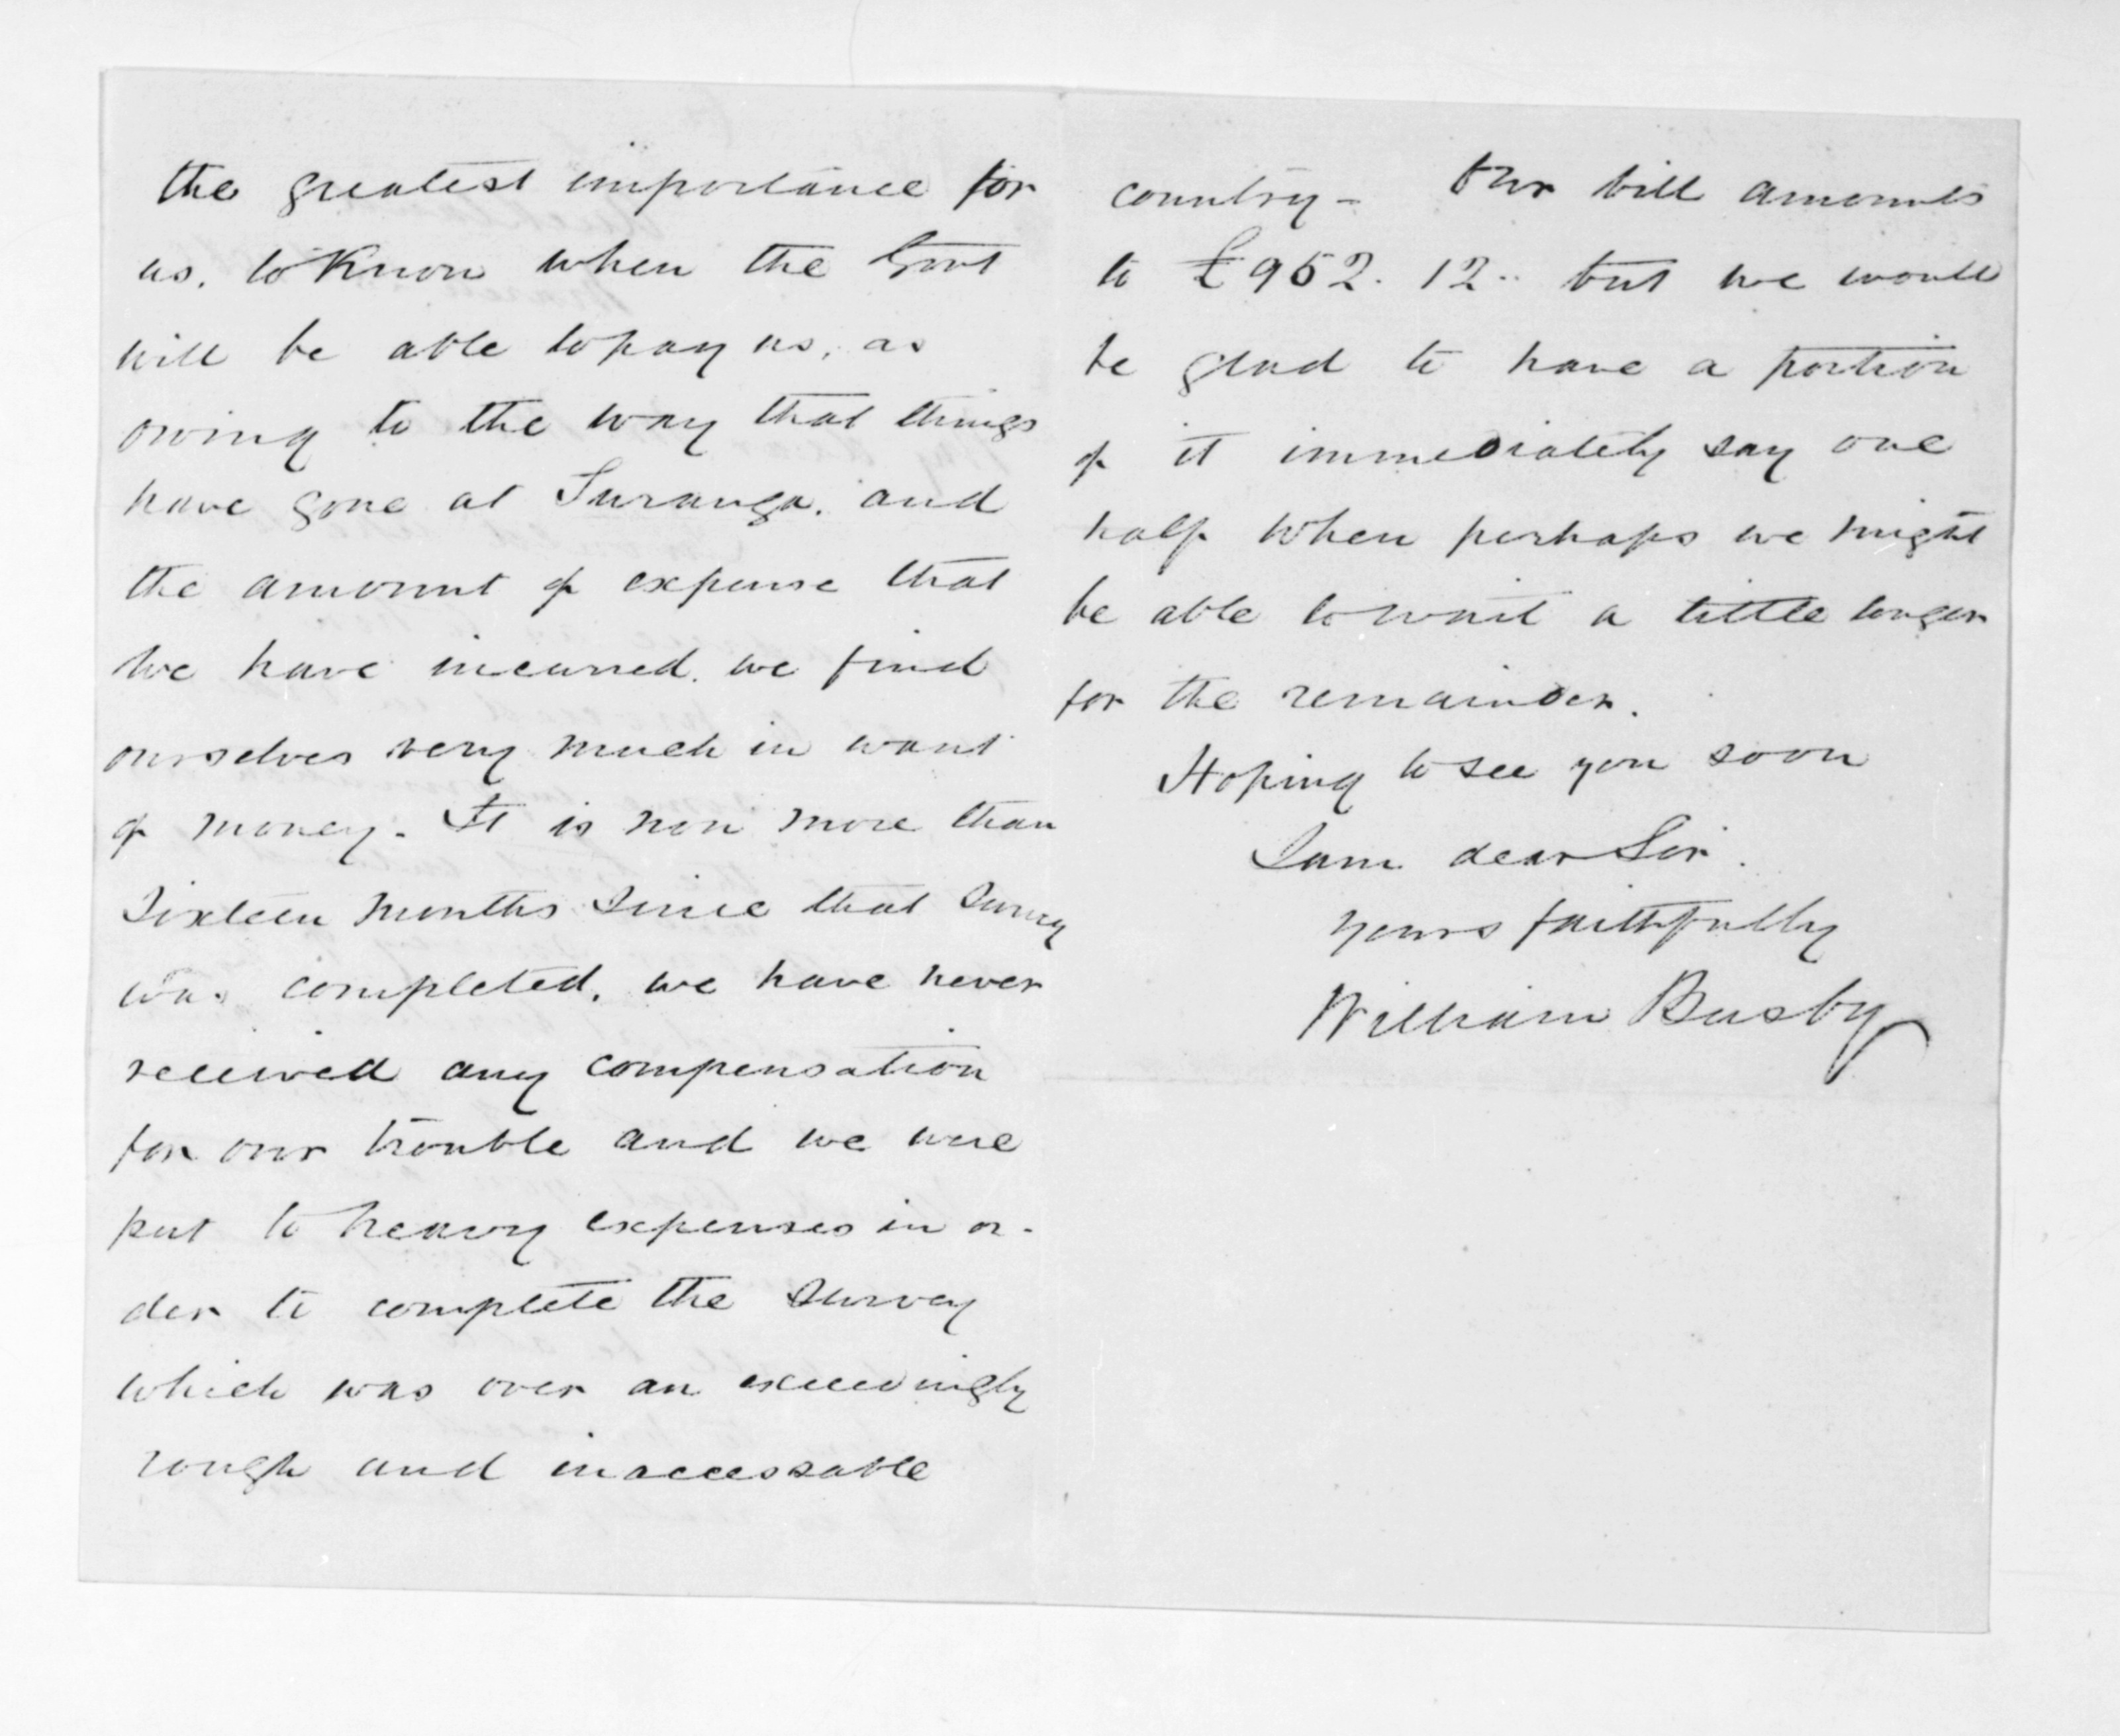 the greatest importance for
us, to Know when the Govt
will be able to pay us, as
owing to the way that things
have gone at Turanga, and
the amount of expense that
we have incurred, we find
ourselves very much in want
of money. It is now more than
Sixteen months since that survey
was completed, we have never
received any compensation
for our trouble and we were
put to heavy expenses in or-
der to complete the survey
which was over an exceedingly
rough and inaccessable
country - Our bill amounts
to £952. 12.. but we would
be glad to have a portion
of it immediately say one
half when perhaps we might
be able to wait a little longer
for the remainder.
Hoping to see you soon
I am dear Sir.
yours faithfully
William Busby